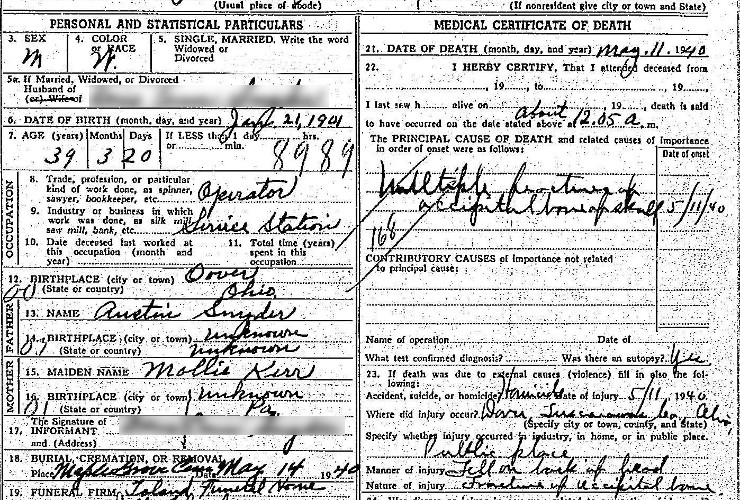 (Usual place of abode)
(If nonresident give city or town and State)
PERSONAL AND STATISTICAL PARTICULARS
3. SEX
M
4. COLOR or RACE
W.
5. SINGLE, MARRIED. Write the word
Widowed or
Divorced
5a. If Married, Widowed, or Divorced
Husband of
(or) Wife of
6. DATE OF BIRTH (month, day, and year) Jan. 21, 1901
7. AGE (years) Months Days If LESS than 1 day hrs.
or min.
39 3 20
8989
OCCUPATION
8. Trade, profession, or particular
kind of work done, as spinner,
sawyer, bookkeeper, etc. Operator
9. Industry or business in which
work was done, as silk mill,
saw mill, bank, etc. Service Station
10. Date deceased last worked at
this occupation (month and
year)
11. Total time (years)
spent in this
occupation
12. BIRTHPLACE (city or town) Dover
(State or country) Ohio
FATHER
13. NAME Austin Snyder
14. BIRTHPLACE (city or town) unknown
(State or country) unknown
MOTHER
15. MAIDEN NAME Mollie Kerr
16. BIRTHPLACE (city or town) unknown
(State or country) Pa
The Signature of
17. INFORMANT
and (Address)
18. BURIAL, CREMATION, OR REMOVAL
Place Maple Grove Cem Date May 14 1940
19. FUNERAL FIRM, Toland Funeral Home
MEDICAL CERTIFICATE OF DEATH
21. DATE OF DEATH (month, day, and year) May. 11. 1940
22. I HERBY CERTIFY, That I attended deceased from
, 19 , to , 19
I last saw h alive on , 19 , death is said
to have occurred on the date stated above at about 12.05 a. m.
The PRINCIPAL CAUSE OF DEATH and related causes of Importance
in order of onset were as follows:
Date of onset
Multiple fractures of
occipital bone of skull 5/11/40
168
CONTRIBUTORY CAUSES of importance not related
to principal cause:
Name of operation Date of
What test confirmed diagnosis? Was there an autopsy? Yes
23. If death was due to external causes (violence) fill in also the fol-
lowing:
Accident, suicide, or homicide? Homicide Date of injury 5/11 1940
Where did injury occur? Dover, Tuscarawas Co, Ohio
(Specify city or town, county, and State)
Specify whether injury occurred in industry, in home, or in public place.
Public place
Manner of injury Fell on back of head
Nature of injury Fracture of occipital bone